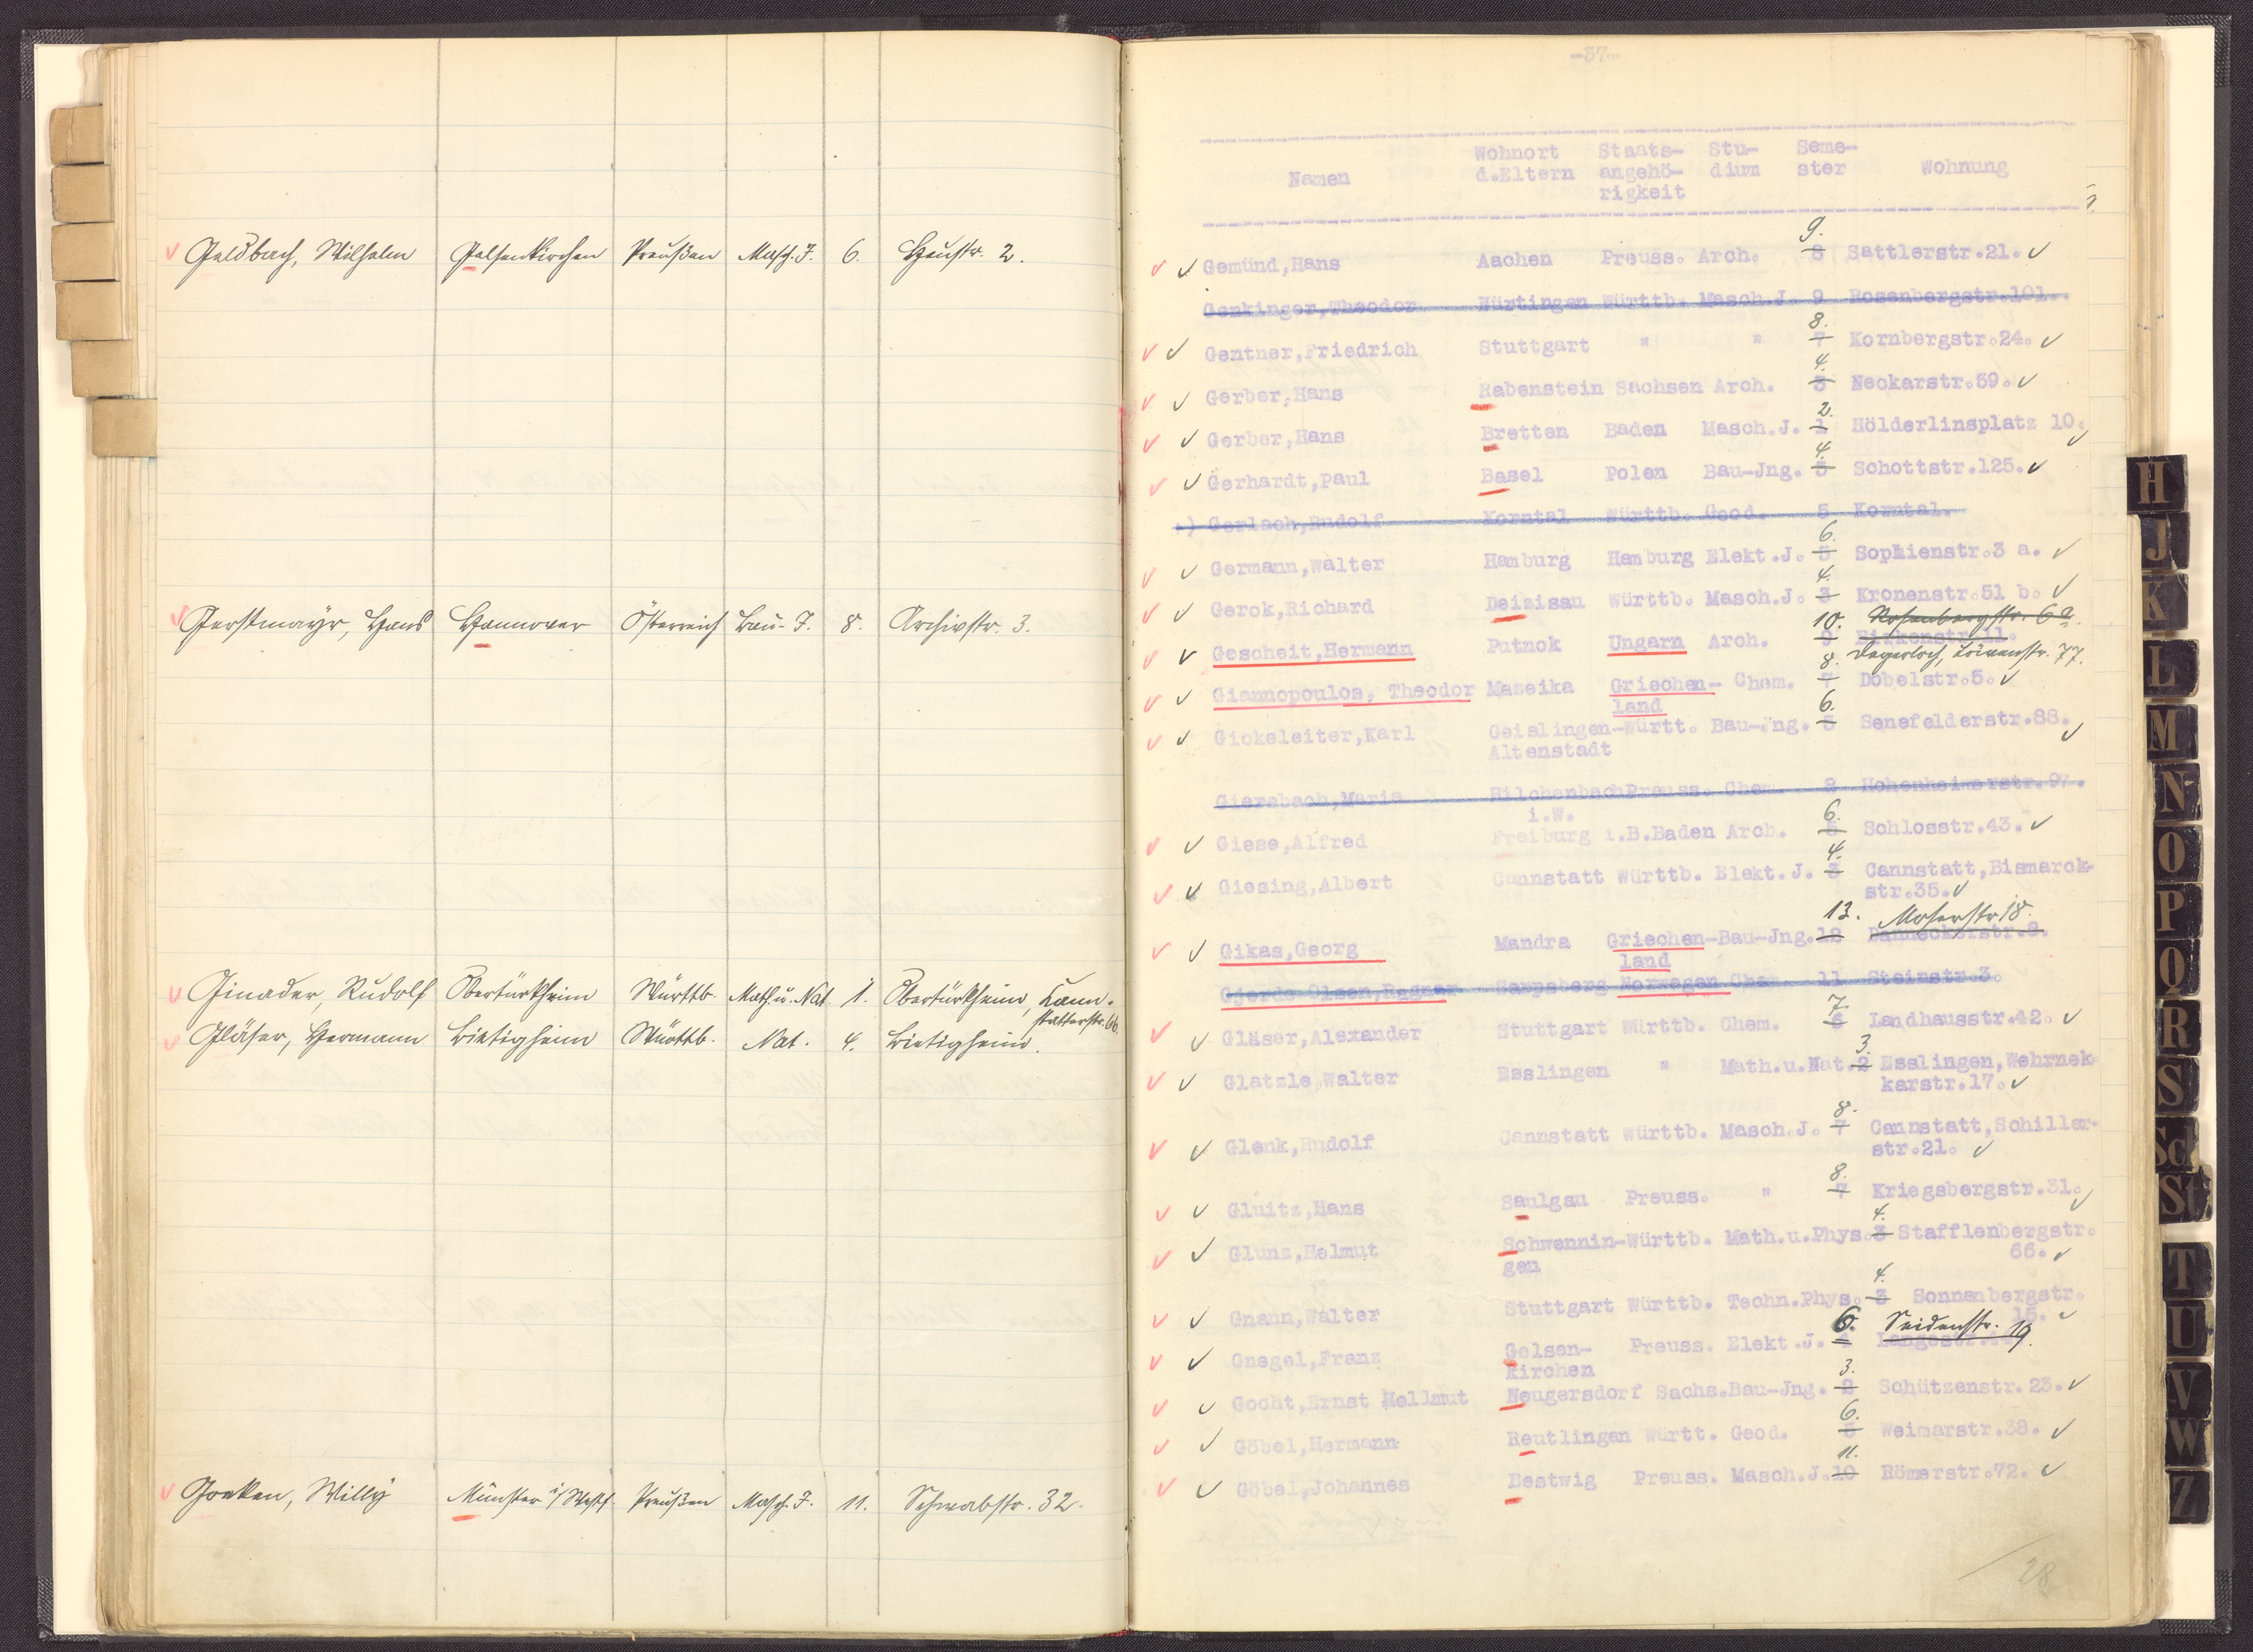 Geldbach, Wilhelm Gelsenkirchen Preußen Masch. J. 6. Heustr. 2.
Gerstmayr, Hans Hannover Österreich Bau-J. 8. Archivstr. 3.
Ginader, Rudolf Obertürkheim Württb. Math. u. Nat. 1. Obertürkheim, Cann-
statterstr. 66.
Gläser, Hermann Bietigheim Württb. Nat. 4. Bietigheim.
Willy Münster i/Westf. Preußen Masch. J. 11. Schwabstr. 32.
-37-
Wohnort Staats- Stu- Seme-
Namen d.Eltern angehö- dium ster Wohnung
rigkeit
9.
Gemünd,Hans Aachen Preuss. Arch. 8 Sattlerstr.21.
Genkinger,Theodor Nürtingen Württb. Masch.J. 9 Rosenbergstr.101.
8.
Gentner,Friedrich Stuttgart " " 7 Kornbergstr.24.
4.
Gerber,Hans Rabenstein Sachsen Arch. 3 Neckarstr.59.
2.
Gerber,Hans Bretten Baden Masch.J. 1 Hölderlinsplatz 10.
4.
Gerhardt,Paul Basel Polen Bau-Jng. 3 Schottstr.125.
Gerlach,Rudolf Korntal Württb. Geod. 5 Korntal.
6.
Germann,Walter Hamburg Hamburg Elekt.J. 5 Sophienstr.3 a.
4.
Gerok,Richard Deizisau Württb. Masch.J. 3 Kronenstr.51 b.
10. Rosenbergstr. 62.
Gescheit,Hermann Putnok Ungarn Arch. 9 Birkenstr.11.
8. Degerloch, Löwenstr. 77.
Giannopoulos, Theodor Mazeika Griechen- Chem. 7 Döbelstr.5.
land 6.
Gickeleiter,Karl Geislingen-Württ. Bau-Jng. 5 Senefelderstr.88.
Altenstadt
Giersbach,Maria Hilchenbach Preuss. Chem. 2 Hohenheimerstr.97.
i.W. 6.
Giese,Alfred Freiburg i.B.Baden Arch. 5 Schlosstr.43.
4.
Giesing,Albert Cannstatt Württb. Elekt.J. 3 Cannstatt,Bismarck-
str.35.
13. Moserstr 18.
Gikas,Georg Mandra Griechen-Bau-Jng.12 Danneckerstr.9.
land
Gjerde Olsen,Ragnar Sarpsborg Norwegen Chem. 11 Steinstr.3.
7.
Gläser,Alexander Stuttgart Württb. Chem. 6 Landhausstr.42.
3.
Glatzle,Walter Esslingen " Math.u.Nat.2 Esslingen,Wehrnek-
karstr.17.
8.
Glenk,Rudolf Cannstatt Württb. Masch.J. 7 Cannstatt,Schiller-
str.21.
8.
Gluitz,Hans Saulgau Preuss. " 7 Kriegsbergstr.31.
4.
Glunz,Helmut Schwennin-Württb. Math.u.Phys.3 Stafflenbergstr.
gen 66.
4.
Gnann,Walter Stuttgart Württb. Techn.Phys. 3 Sonnenbergstr.
15.
6. Seidenstr. 19.
Gnegel,Franz Gelsen- Preuss. Elekt.J. 4
kirchen 3.
Gocht,Ernst Hellmut Neugersdorf Sachs.Bau-Jng. 2 Schützenstr. 23.
6.
Göbel,Hermann Reutlingen Württ. Geod. 5 Weimarstr.38.
11.
Göbel,Johannes Bestwig Preuss. Masch.J.10 Römerstr.72.
28
H
J
K
L
M
N
O
P
Q
R
S
Sch
St
T
U
V
W
Z